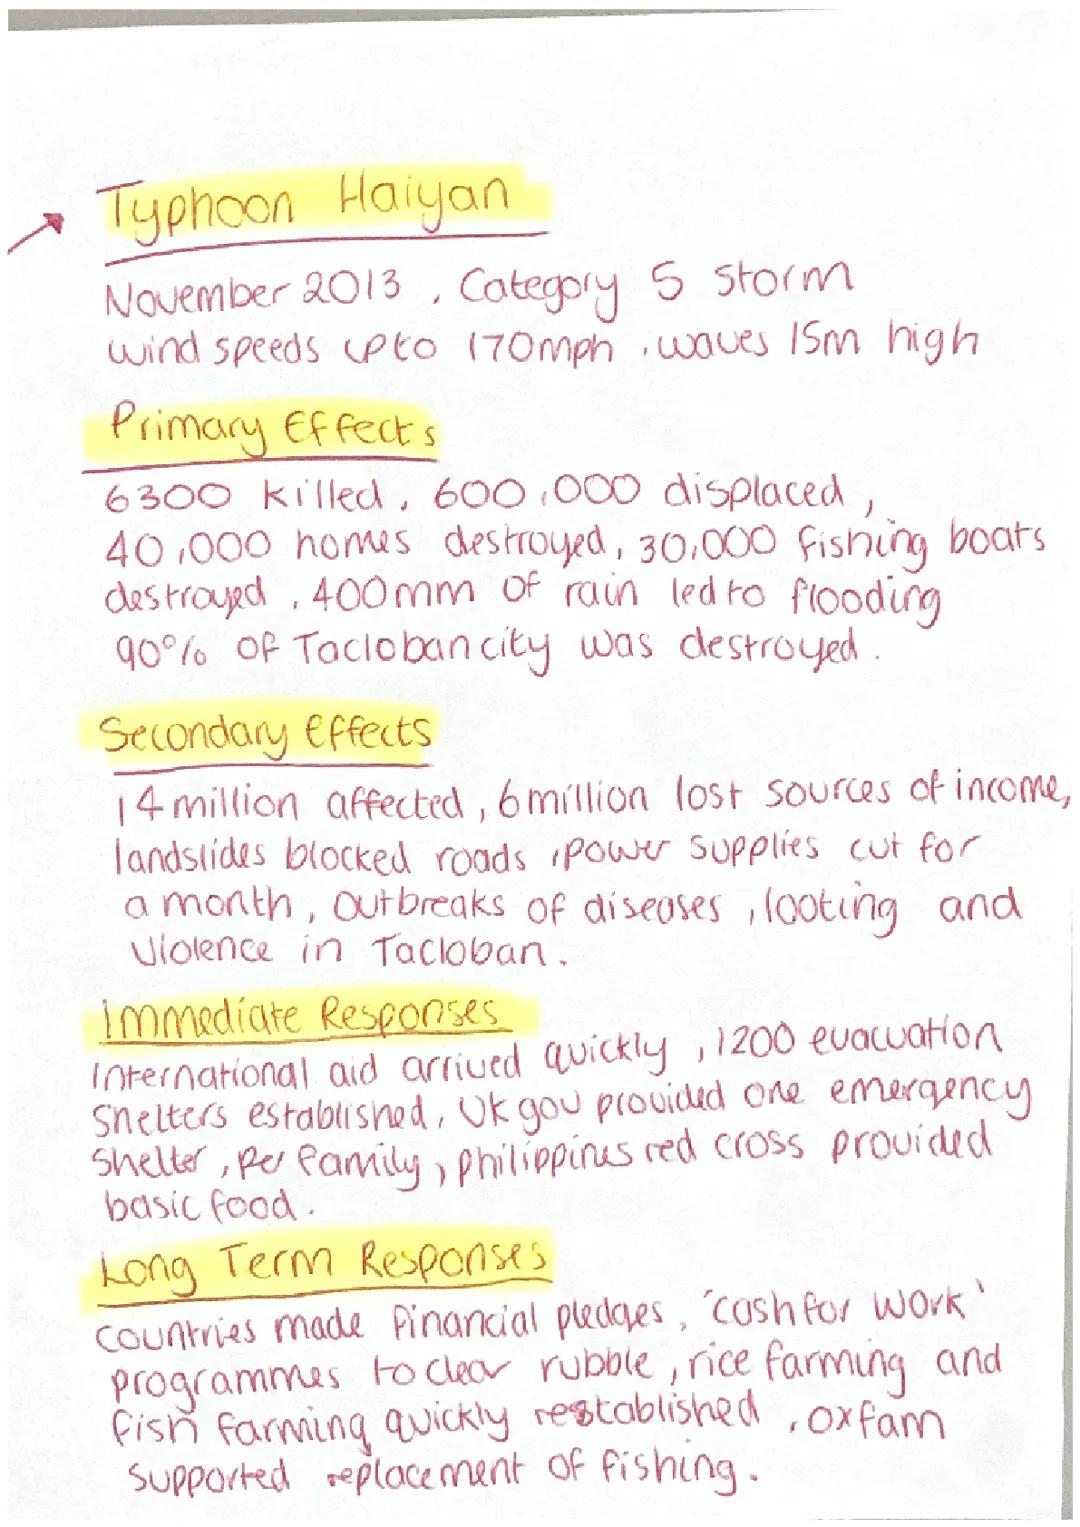 Typhoon Haiyan
November 2013, Category 5 storm
wind speeds upto 170mph, waves 15m high
Primary Effects
6300 killed, 600,000 displaced,
40,000 homes destroyed, 30,000 fishing boats
destroyed, 400mm of rain led to flooding
90% of Tacloban city was destroyed.
Secondary Effects
14 million affected, 6 million lost sources of income,
landslides blocked roads, power supplies cut for
a month, outbreaks of diseases, looting and
violence in Tacloban.
Immediate Responses
International aid arrived quickly, 1200 evacuation
shelters established, UK gov provided one emergency
shelter, per family, philippines red cross provided
basic food.
Long Term Responses
countries made financial pledges, 'cash for work'
programmes to clear rubble, rice farming and
fish farming quickly restablished, oxfam
supported replacement of fishing.